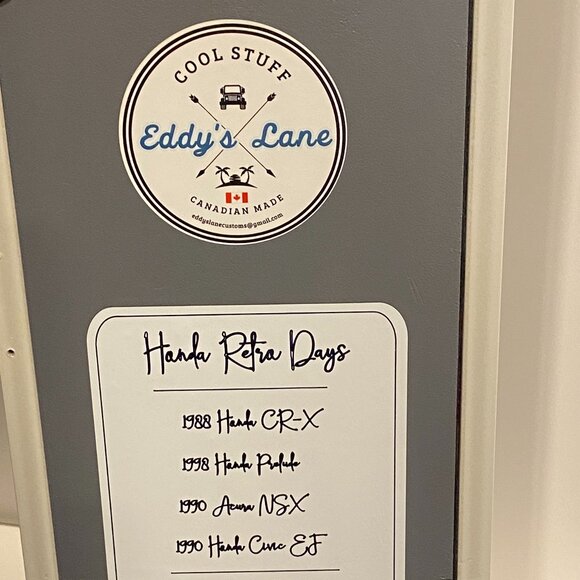 COOL STUFF
Eddy's Lane
CANADIAN MADE
eddyslanecustoms@gmail.com
Honda Retro Days
1988 Honda CR-X
1998 Honda Prelude
1990 Acura NSX
1990 Honda Civic EF